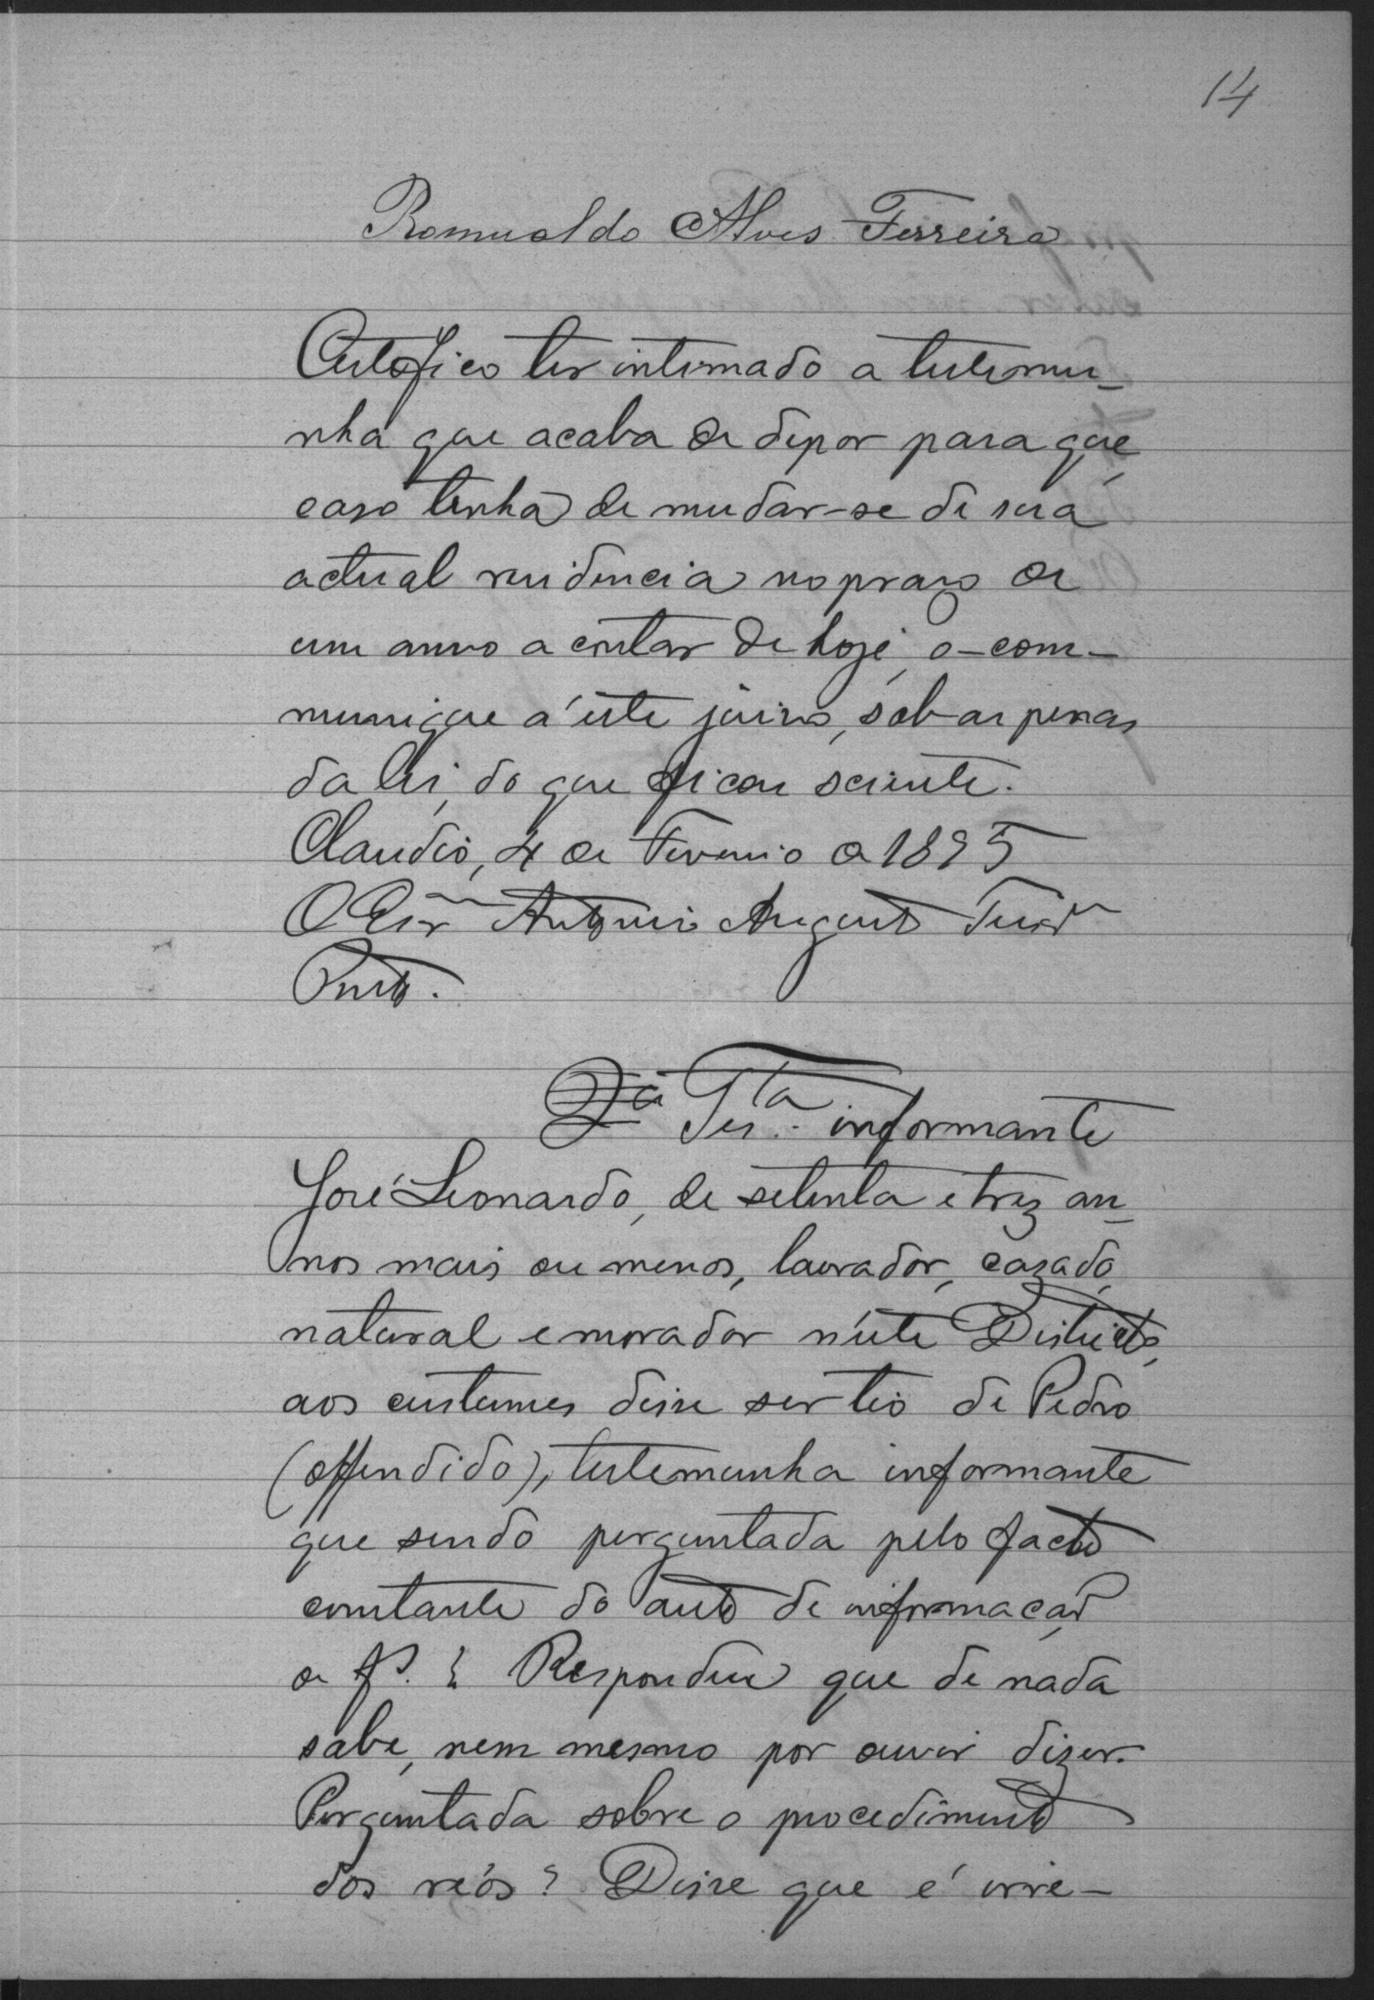 14
Romualdo Alves Ferreira
Certefico ter intimado a testemu-
nha que acaba de depor para que,
caso tenha de mudar-se de sua
actual residencia no prazo de
um anno a contar de hoje, o-com-
munique a' este juizo, sob as penas
da lei, do que ficou sciente.
Claudio, 4 de Fevereiro de 1895
O Esc.am Antonio Augusto
Porto.
2a Tes.ta informante
José Leonardo, de setenta e trez an-
nos mais ou menos, lavrador, cazado,
natural e morador n'este Districto,
aos custumes disse ser tio de Pedro
(offendido), testemunha informante
que sendo perguntada pelo facto
constante do auto de informação
de fs. ? Respondeu que de nada
sabe, nem mesmo por ouvir dizer.
Perguntada sobre o procedimento
dos réos? Disse que é irre-